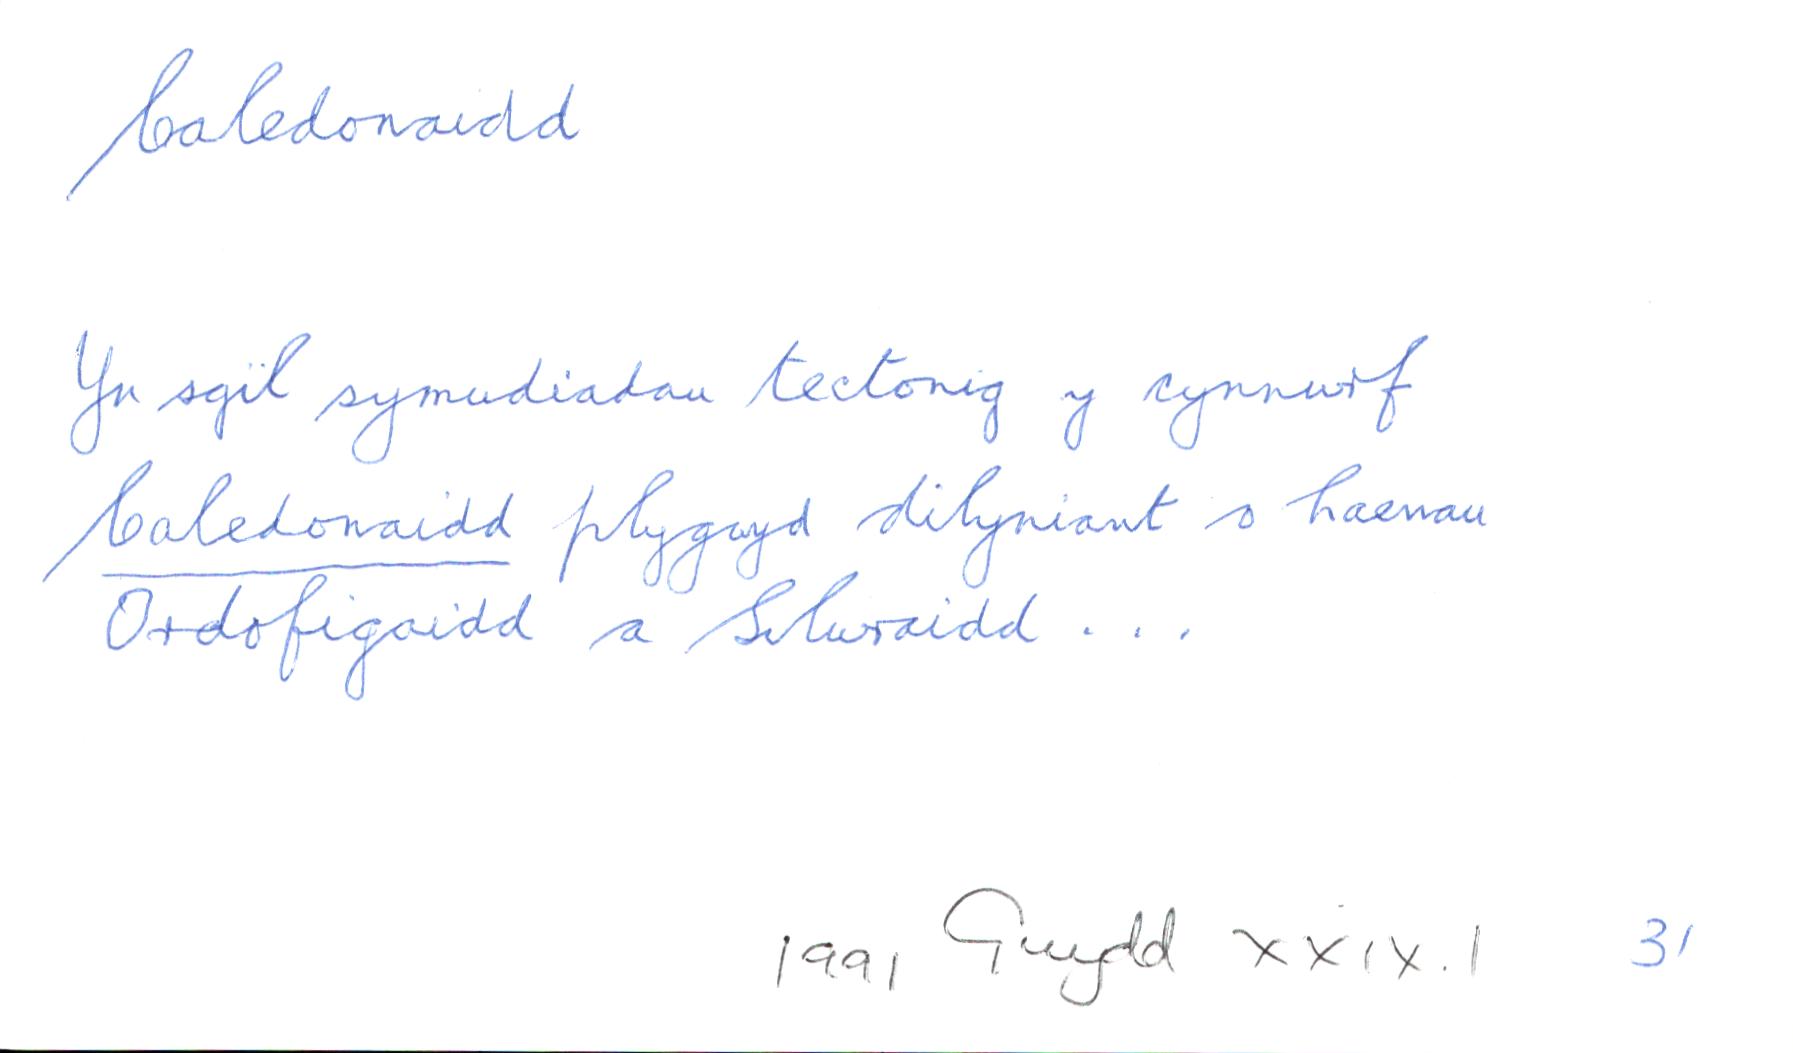 Caledonaidd
Yn sgîl symudiadau tectonig y cynnwrf
Caledonaidd plygwyd dilyniant o haenau
Ordofigaidd a Silwraidd . . .
1991 Gwydd XXIX.1 31